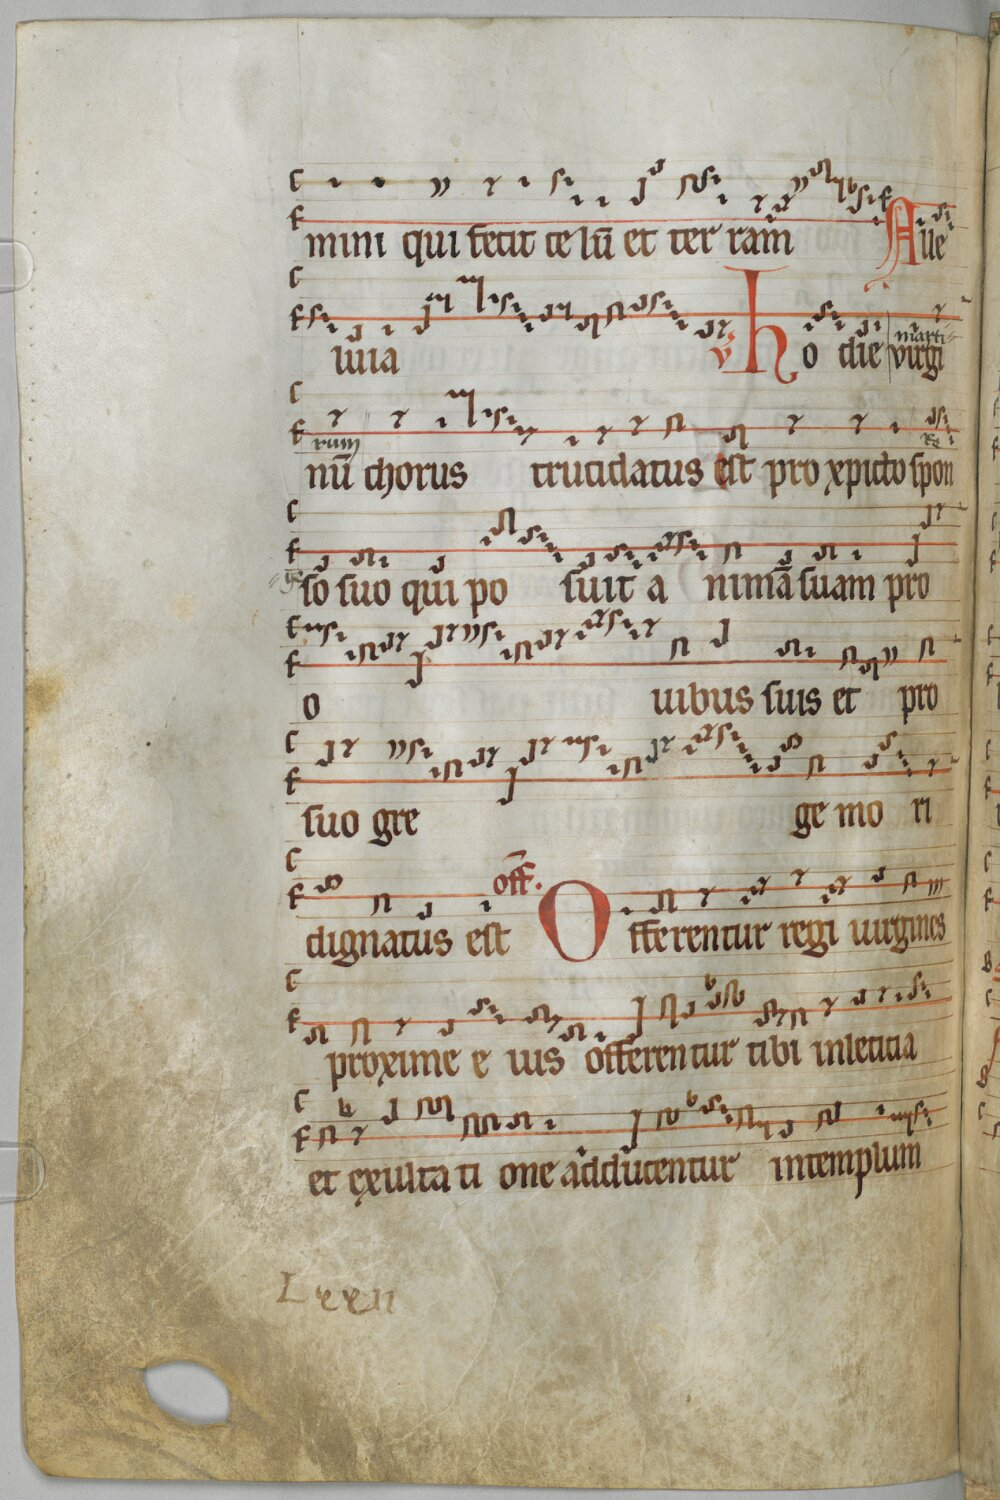 mini qui fecit celū et terram Aue
uuia v̄ hodie virgi
marti
nū chorus trucidatus est pro xpicto spon
rum
so suo qui posuit animā suam pro
o uibus suis et pro
suo grege mori
dignatus est off. Offerentur regi uirgines
proxime eius offerentur tibi inleticia
et exultatione adducentur intemplum
Lxxii